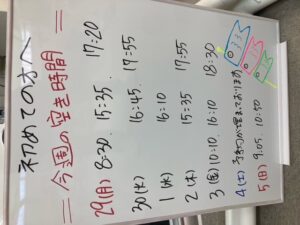 初めての方へ
＝今週の空き時間＝
29(月) 8:30. 15:35. 17:20
30(火) 16:45. 17:55
1 (水) 16:10
2 (木) 15:35 17:55
3 (金) 10:10. 16:10 18:30
4 (土) 予約が埋まっております
5 (日) 9:05. 10:50